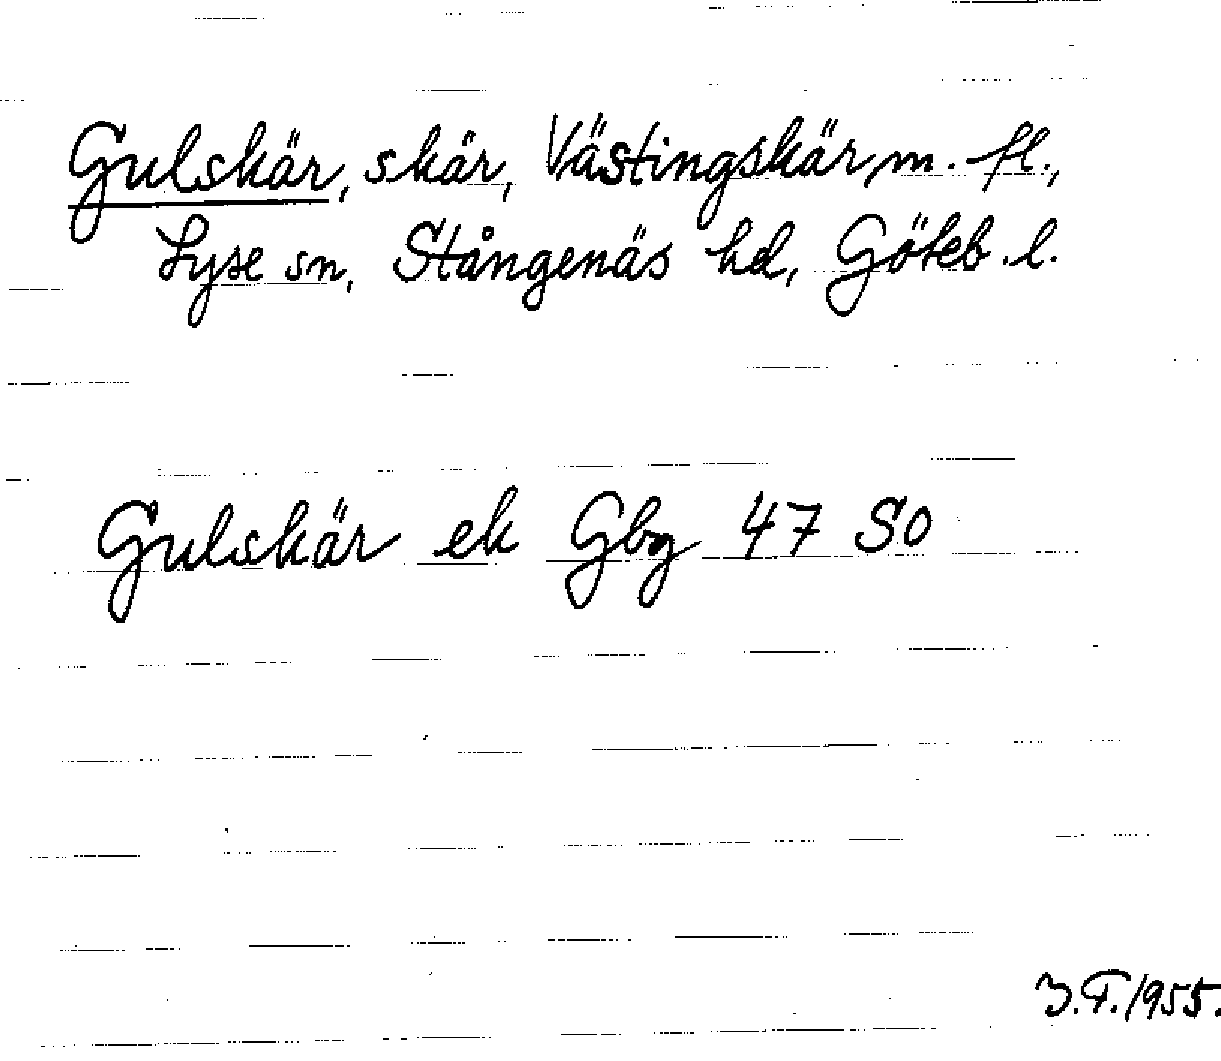 Gulskär, skär, Västingskär, m. fl.,
Lyse sn, Stångenäs hd, Göteb. l.
Gulskär ek Gbg 47 SO
J.T. 1955.